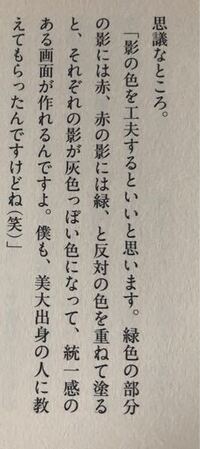 思議なところ。
「影の色を工夫するといいと思います。緑色の部分
の影には赤、赤の影には緑、と反対の色を重ねて塗る
と、それぞれの影が灰色っぽい色になって、統一感の
ある画面が作れるんですよ。僕も、美大出身の人に教
えてもらったんですけどね（笑）」